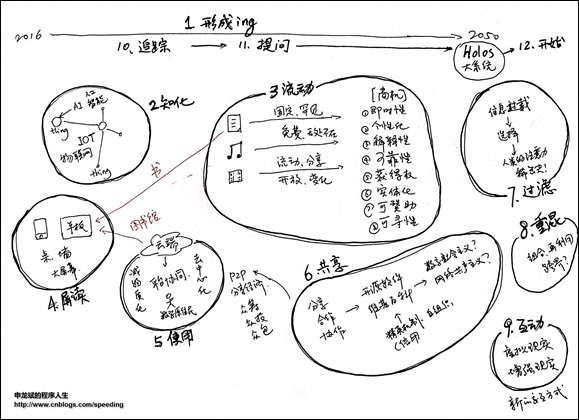 1. 形成ing
2016
2050
10. 追踪
11. 提问
Holos
大系统
12. 开始
2. 知化
人工
AI 智能
thing
IOT
物联网
thing
3. 流动
固定、罕见
免费、无处不在
流动、分享
开放、变化
[商机]
①即时性
②个性化
③解释性
④可靠性
⑤获得权
⑥实体化
⑦可赞助
⑧可寻性
信息超载
选择
人类的注意力
7. 过滤
书
图书馆
平板
桌 墙
4. 屏读
云端
减物质化
去中心化
5. 使用
P2P
众筹
众投
众包
6. 共享
分享
合作
协作
开源软件
数字社会主义?
网络共产主义?
8. 重混
组合 再利用
跨界?
9. 互动
虚拟现实
增强现实
新的交互方式
申龙斌的程序人生
http://www.cnblogs.com/speeding